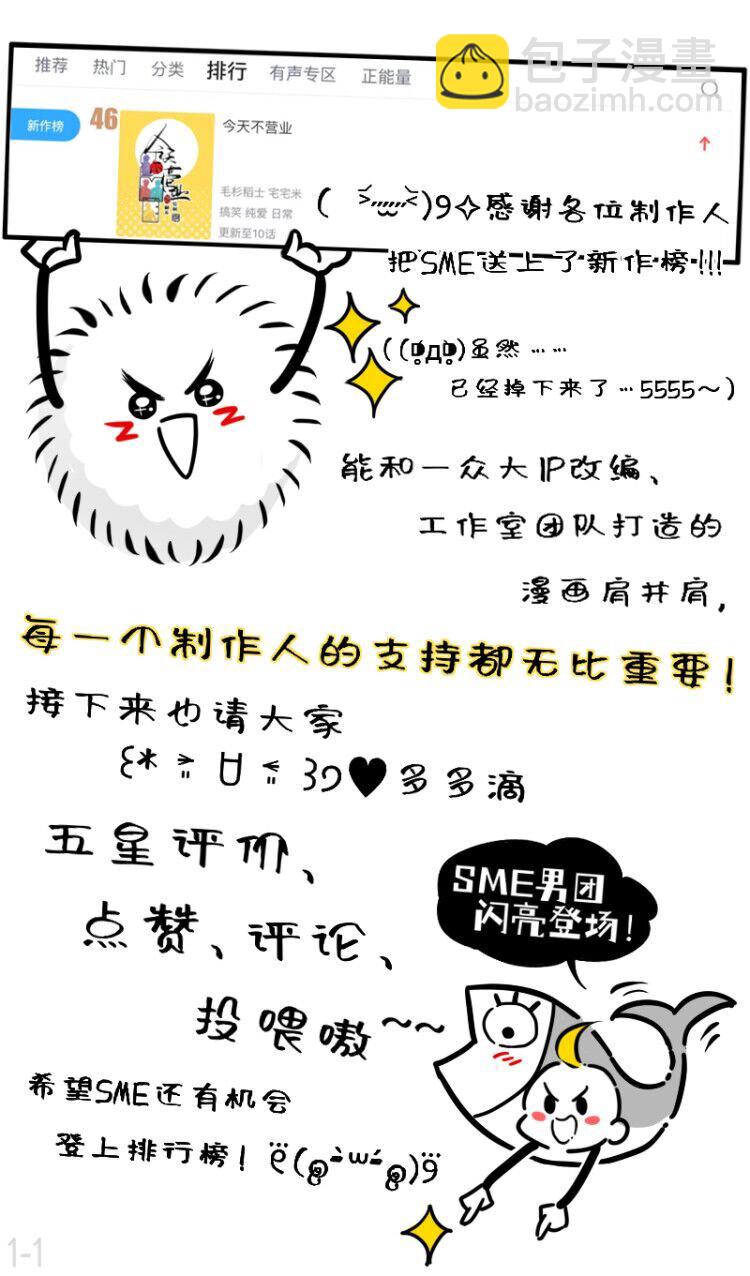 推荐 热门 分类 排行 有声专区 正能量
包子漫畫
baozimh.com
新作榜
46
今天不营业
毛杉稻士 宅宅米
搞笑 纯爱 日常
更新至10话
感谢各位制作人
把SME送上了新作榜!!!
虽然……
已经掉下来了…5555~)
能和一众大IP改编、
工作室团队打造的
漫画肩并肩,
每一个制作人的支持都无比重要!
接下来也请大家
多多滴
五星评价、
点赞、评论、
投喂嗷~~
SME男团
闪亮登场!
希望SME还有机会
登上排行榜!
1-1